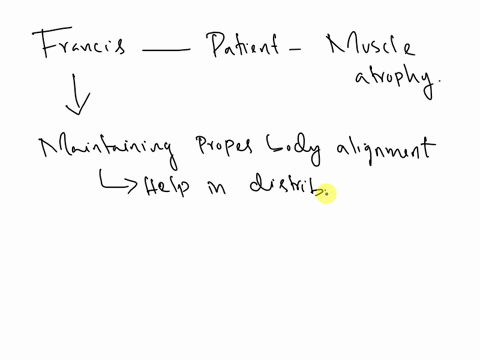 Francis — Patient - Muscle
atrophy.
↓
Maintaining Proper body alignment
↳ Help in distrib.